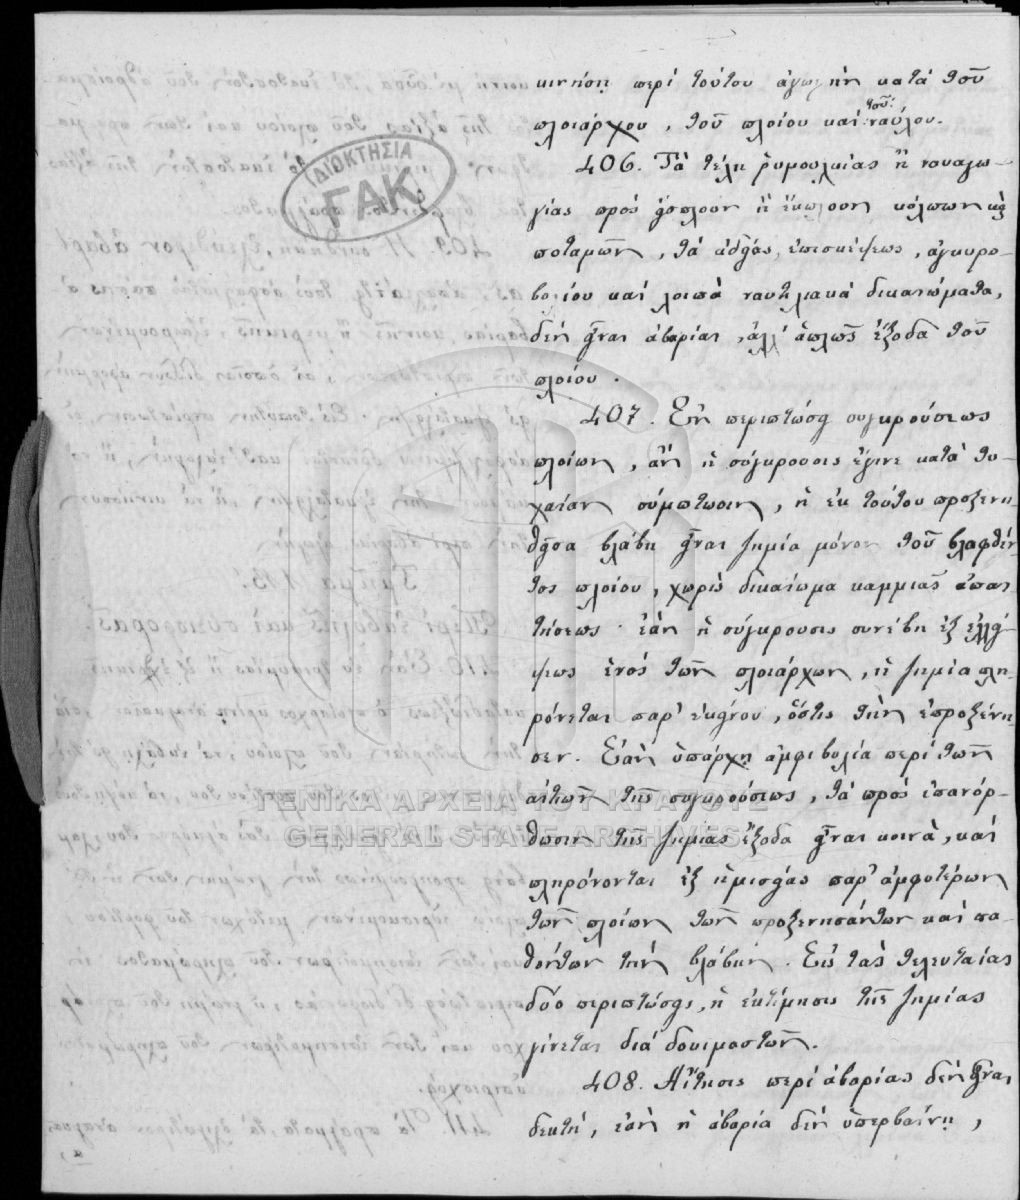 κινήσῃ περὶ τούτου ἀγωγὴν κατὰ τοῦ
πλοιάρχου, τοῦ πλοίου καὶ τοῦ ναύλου.
406. Τὰ τέλη ῥυμουλκίας ἢ ναυαγω-
γίας πρὸς εἴσπλουν ἢ ἔκπλουν κόλπων καὶ
ποταμῶν, τὰ ἀδείας, ἐπισκέψεως, ἀγκυρο-
βολίου καὶ λοιπὰ ναυτιλιακὰ δικαιώματα,
δὲν εἶναι ἀβαρίαι, ἀλλ' ἁπλῶς ἔξοδα τοῦ
πλοίου.
407. Ἐν περιπτώσει συγκρούσεως
πλοίων, ἂν ἡ σύγκρουσις ἔγινε κατὰ τυ-
χαίαν σύμπτωσιν, ἡ ἐκ τούτου προξενη-
θεῖσα βλάβη εἶναι ζημία μόνον τοῦ βλαφθέν
τος πλοίου, χωρὶς δικαίωμα καμμιᾶς ἀπαι-
τήσεως· ἐὰν ἡ σύγκρουσις συνέβη ἐξ ἐλλεί-
ψεως ἑνὸς τῶν πλοιάρχων, ἡ ζημία πλη-
ρόνεται παρ' ἐκείνου, ὅστις τὴν ἐπροξένη-
σεν. Ἐὰν ὑπάρχῃ ἀμφιβολία περὶ τῶν
αἰτιῶν τῆς συγκρούσεως, τὰ πρὸς ἐπανόρ-
θωσιν τῆς ζημίας ἔξοδα εἶναι κοινὰ, καὶ
πληρόνονται ἐξ ἡμισείας παρ' ἀμφοτέρων
τῶν πλοίων τῶν προξενησάντων καὶ πα-
θόντων τὴν βλάβην. Εἰς τὰς τελευταίας
δύο περιπτώσεις, ἡ ἐκτίμησις τῆς ζημίας
γίνεται διὰ δοκιμαστῶν.
408. Αἴτησις περὶ ἀβαρίας δὲν εἶναι
δεκτὴ, ἐὰν ἡ ἀβαρία δὲν ὑπερβαίνῃ,
ΙΔΙΟΚΤΗΣΙΑ
ΓΑΚ
ΓΕΝΙΚΑ ΑΡΧΕΙΑ ΤΟΥ ΚΡΑΤΟΥΣ
GENERAL STATE ARCHIVES